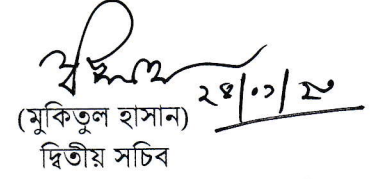 ২৪/০১/২০
(মুকিতুল হাসান)
দ্বিতীয় সচিব